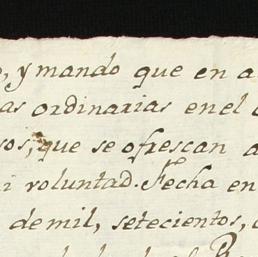 , y mando que en a
as ordinarias en el
sos, que se ofrescan a
i voluntad. Fecha en
de mil, setecientos,